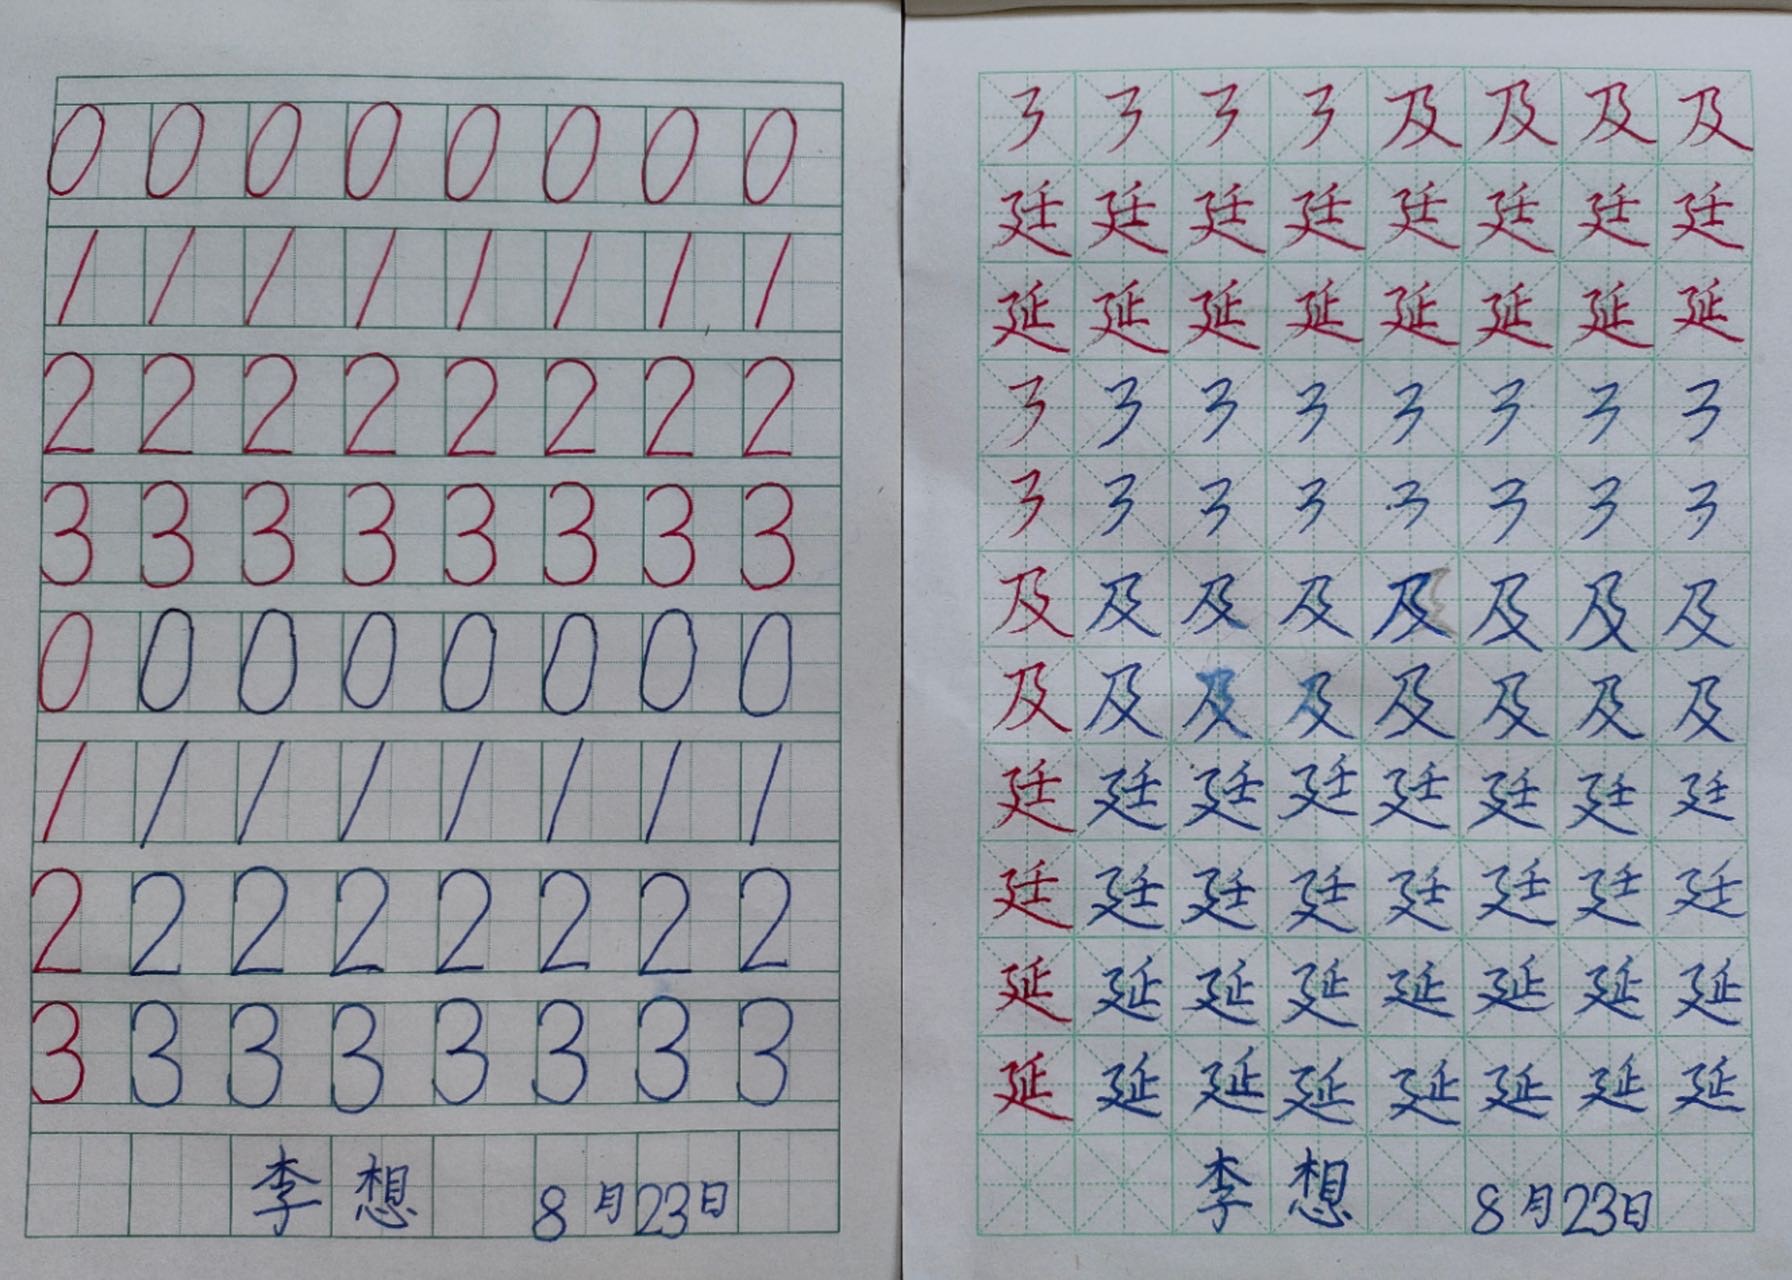 0 0 0 0 0 0 0 0
1 1 1 1 1 1 1 1
2 2 2 2 2 2 2 2
3 3 3 3 3 3 3 3
0 0 0 0 0 0 0 0
1 1 1 1 1 1 1 1
2 2 2 2 2 2 2 2
3 3 3 3 3 3 3 3
李想 8月23日
㇋ ㇋ ㇋ ㇋ 及 及 及 及
廷 廷 廷 廷 廷 廷 廷 廷
延 延 延 延 延 延 延 延
㇋ ㇋ ㇋ ㇋ ㇋ ㇋ ㇋ ㇋
㇋ ㇋ ㇋ ㇋ ㇋ ㇋ ㇋ ㇋
及 及 及 及 及 及 及 及
及 及 及 及 及 及 及 及
廷 廷 廷 廷 廷 廷 廷 廷
廷 廷 廷 廷 廷 廷 廷 廷
延 延 延 延 延 延 延 延
延 延 延 延 延 延 延 延
李想 8月23日